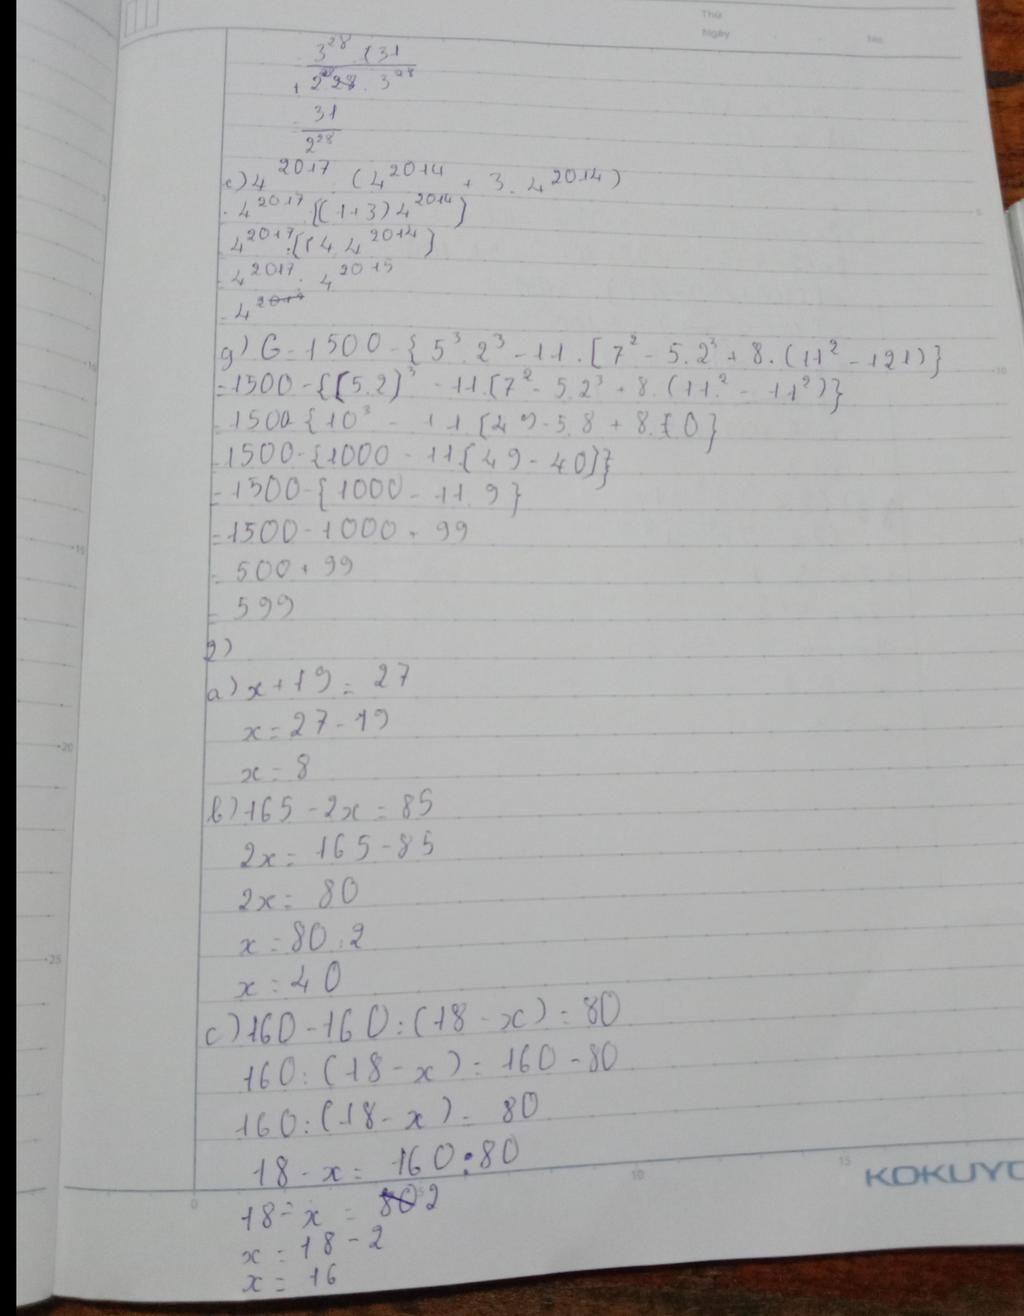 Thứ
Ngày
No.
3^28 . (31
2^28 . 3^28
= 31
2^28
e) 4^2017 . (4^2014 + 3 . 4^2014)
= 4^2017 . [(1+3) 4^2014]
4^2017 . [(4 . 4^2014]
= 4^2017 . 4^2015
= 4
g) G = 1500 - {5^3 . 2^3 - 11 . [7^2 - 5 . 2^3 + 8 . (11^2 - 121)}
= 1500 - {(5.2)^3 - 11 . [7^2 - 5.2^3 + 8 . (11^2 - 11^2)}
= 1500 - {10^3 - 11 [49 - 5.8 + 8.{0}
= 1500 - {1000 - 11 [49 - 40]}
= 1500 - {1000 - 11 . 9}
= 1500 - 1000 + 99
= 500 + 99
= 599
2)
a) x + 19 = 27
x = 27 - 19
x = 8
b) 165 - 2x = 85
2x = 165 - 85
2x = 80
x = 80 : 2
x = 40
c) 160 - 160 : (18 - x) = 80
160 : (18 - x) = 160 - 80
160 : (18 - x) = 80
18 - x = 160 : 80
18 - x = 2
x = 18 - 2
x = 16
KOKUYO